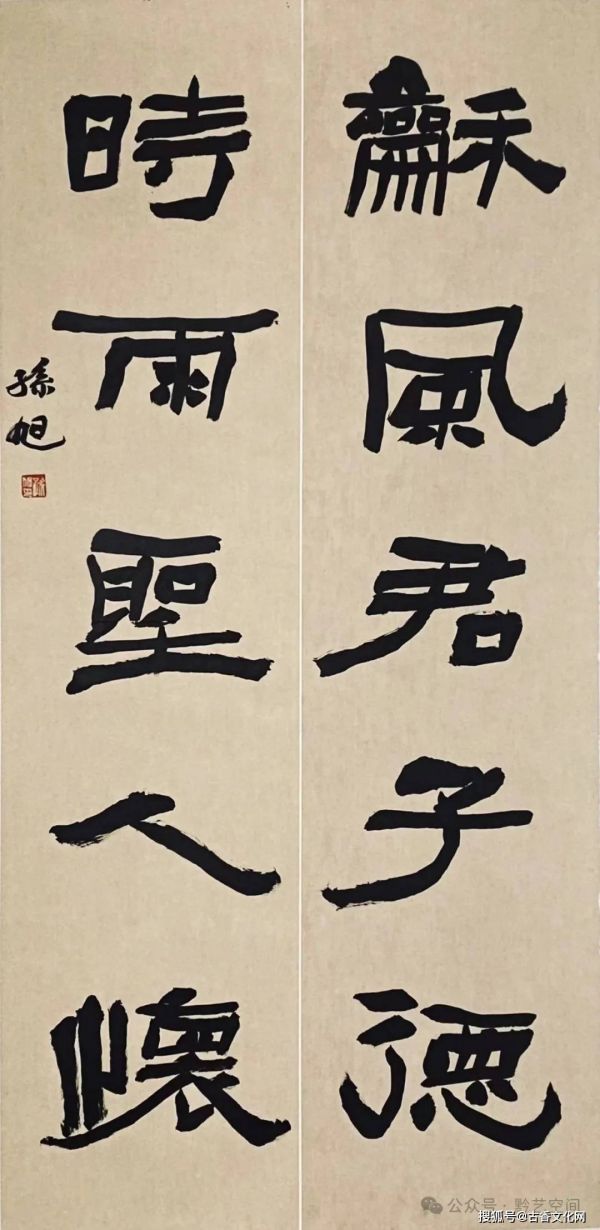 龢風君子德
時雨聖人懷
孫旭
公众号·黔艺空间
搜狐号@古香文化网